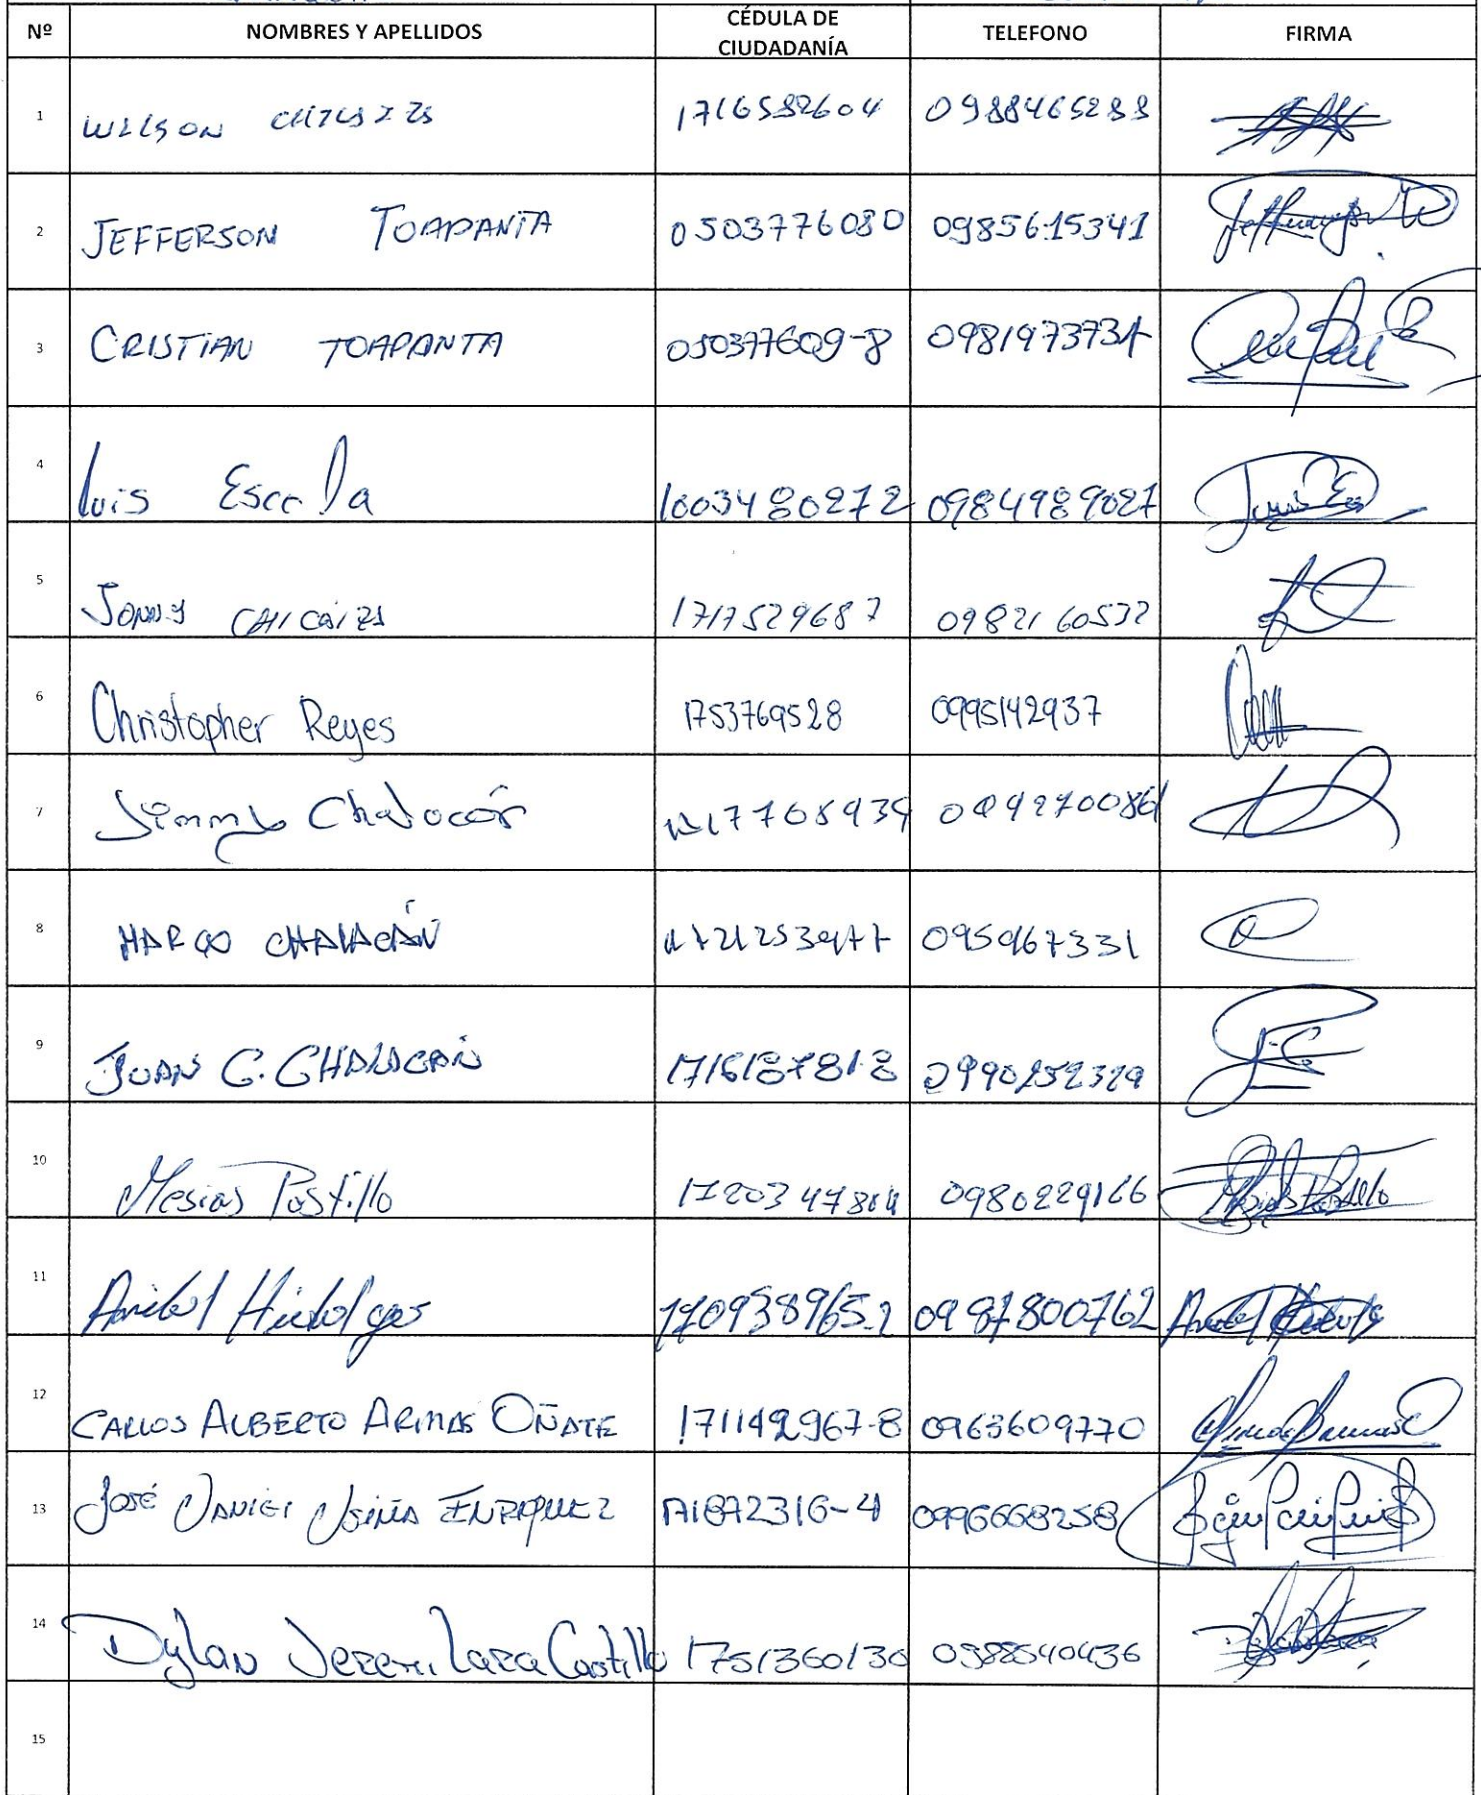 Nº NOMBRES Y APELLIDOS CÉDULA DE CIUDADANÍA TELEFONO FIRMA
1 WILSON 1716582604 0988465288
2 JEFFERSON TOAPANTA 0503776080 0985615341
3 CRISTIAN TOAPANTA 050377609-8 0981973731
4 Luis Escola 1003480272 0984989027
5 JONNY CHICAIZA 1717529687 0982160532
6 Christopher Reyes 1753769528 0995142937
7 Jimmy Chalacán
8 MARCO CHALACÁN 0959167331
9 JUAN C. CHALACÁN 1716187818 0990252329
10 Mesias Postillo 1720347804 0980229166
11 Anibal Hidalgo 170938965-2 0987800762
12 CARLOS ALBERTO ARMAS OÑATE 171142967-8 0963609770
13 JOSÉ DANIEL USIÑA ENRIQUEZ 171872316-4 0996668258
14 Dylan Jeremi Lara Castillo 1751360130 0988540436
15